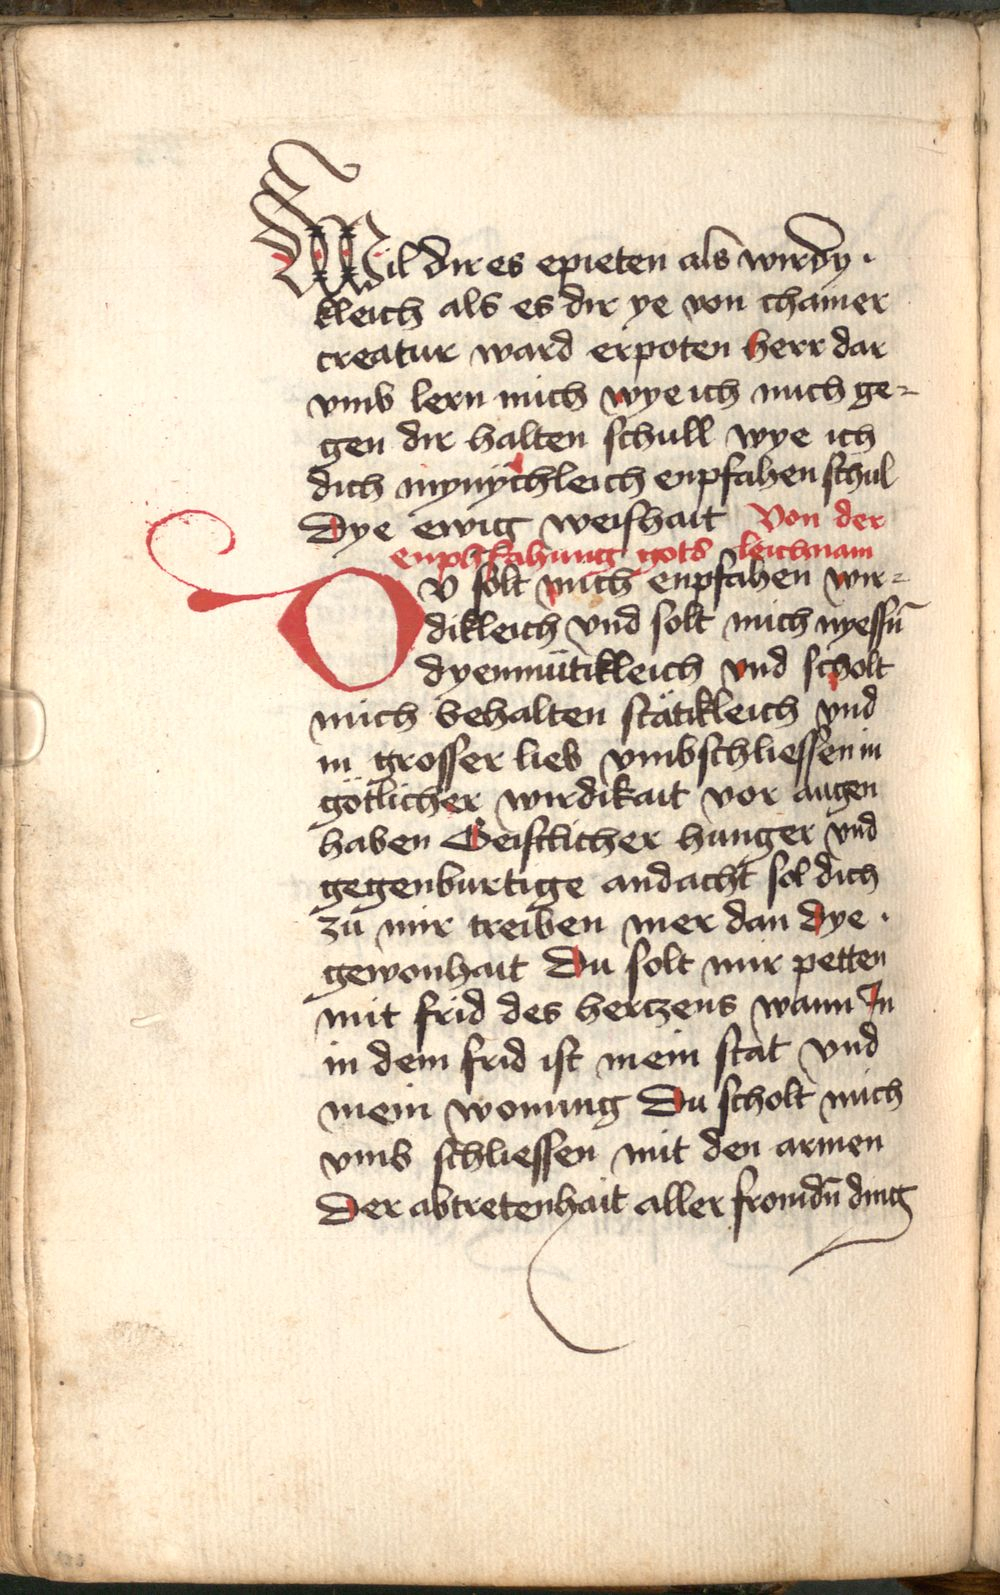 Wil dir es epieten als wirdy ·
kleich als es dir ye von chainer
creatur ward erpoten herr dar
vmb lern mich wye ich mich ge-
gen dir halten schull wye ich
dich mynychleich enpfahen schul
Dye ewig weishait Von der
enphfahung gots leichnam
DV solt mich enpfahen wir-
dikleich vnd solt mich nyessn̄
dyenmütikleich vnd scholt
mich behalten stätikleich vnd
in grosser lieb vmbschliessen in
götlicher wirdikait vor augen
haben Geistlicher hunger vnd
gegenburtige andacht sol dich
zü mir treiben mer dan dye ·
gewonhait Du solt mir petten
mit frid des hertzens wann In
in dem frid ist mein stat vnd
mein wonung Du scholt mich
vmb schliessen mit den armen
Der abtretenhait aller fromdn̄ ding